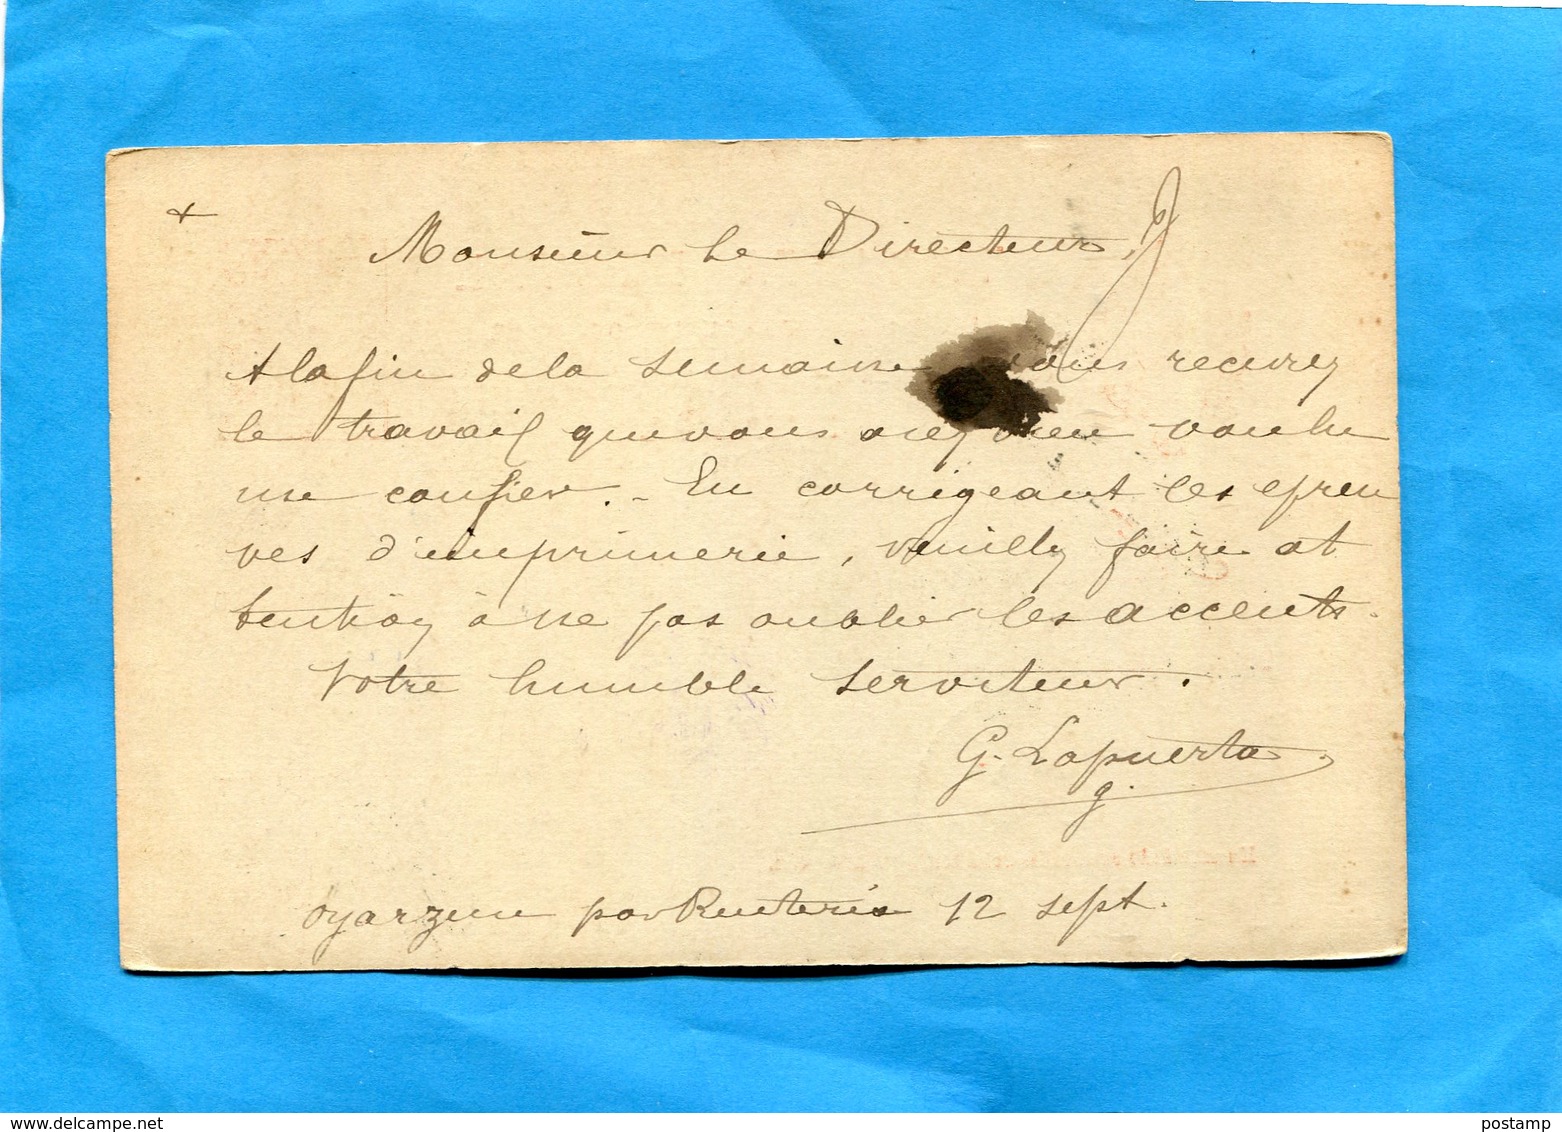 +
Monsieur le Directeur,
A la fin de la semaine vous recevrez
le travail que vous avez bien voulu
me confier. - En corrigeant les épreu
ves d'imprimerie, veuillez faire at
tention à ne pas oublier les accents.
Votre humble serviteur.
G. Lapuerta
Oyarzun par Renteria 12 sept.
postamp